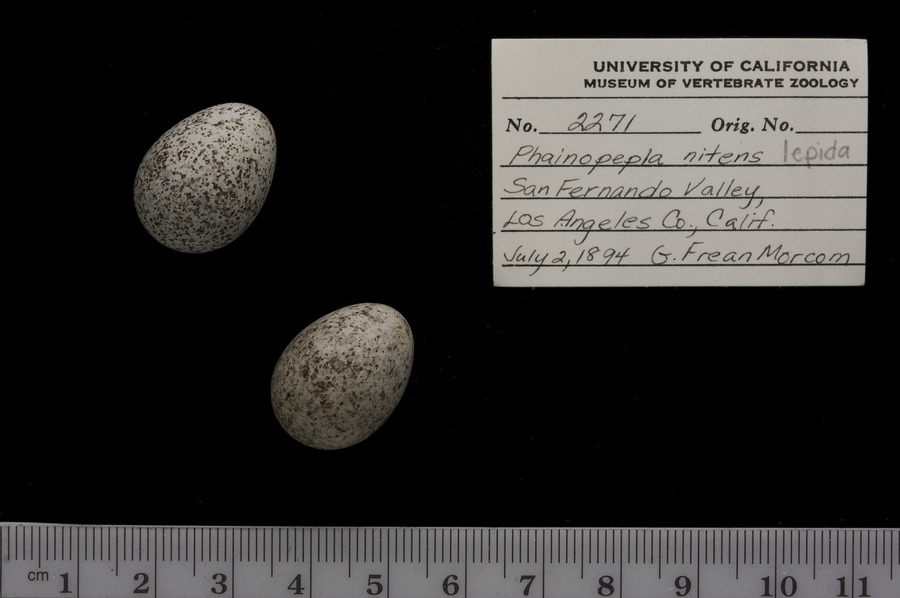 UNIVERSITY OF CALIFORNIA
MUSEUM OF VERTEBRATE ZOOLOGY
No. 2271 Orig. No.
Phainopepla nitens lepida
San Fernando Valley,
Los Angeles Co., Calif.
July 2, 1894 G. Frean Morcom
cm 1 2 3 4 5 6 7 8 9 10 11